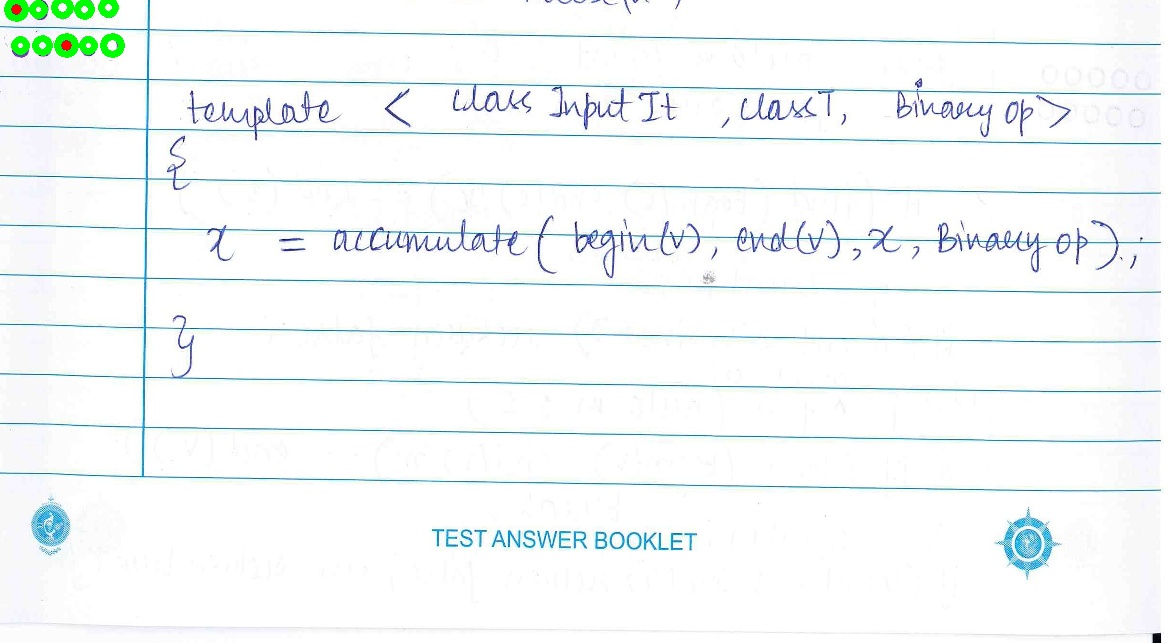 template < class Input It , class T, Binary op>
{
x = accumulate ( begin(v), end(v), x, Binary op);
}
TEST ANSWER BOOKLET